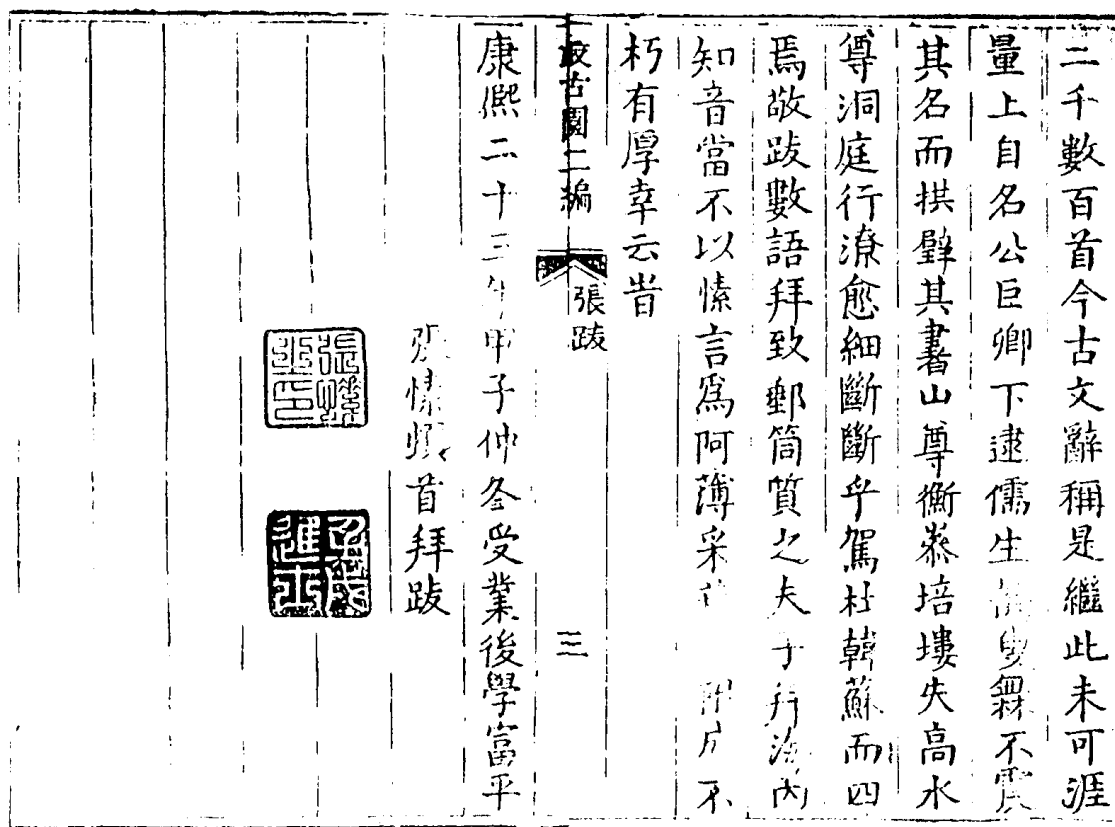 二千數百首今古文辭稱是繼此未可涯
量上自名公巨卿下逮儒生叟霖不震
其名而拱璧其書山尊衡泰培塿失高水
尊洞庭行潦愈細斷斷乎駕杜韓蘇而四
焉敬跋數語拜致郵筒質之夫子幷海內
知音當不以愫言爲阿薄采附不
朽有厚幸云旹
敝古閣二編
張跋
三
康熙二十三年甲子仲冬受業後學富平
張愫頓首拜跋